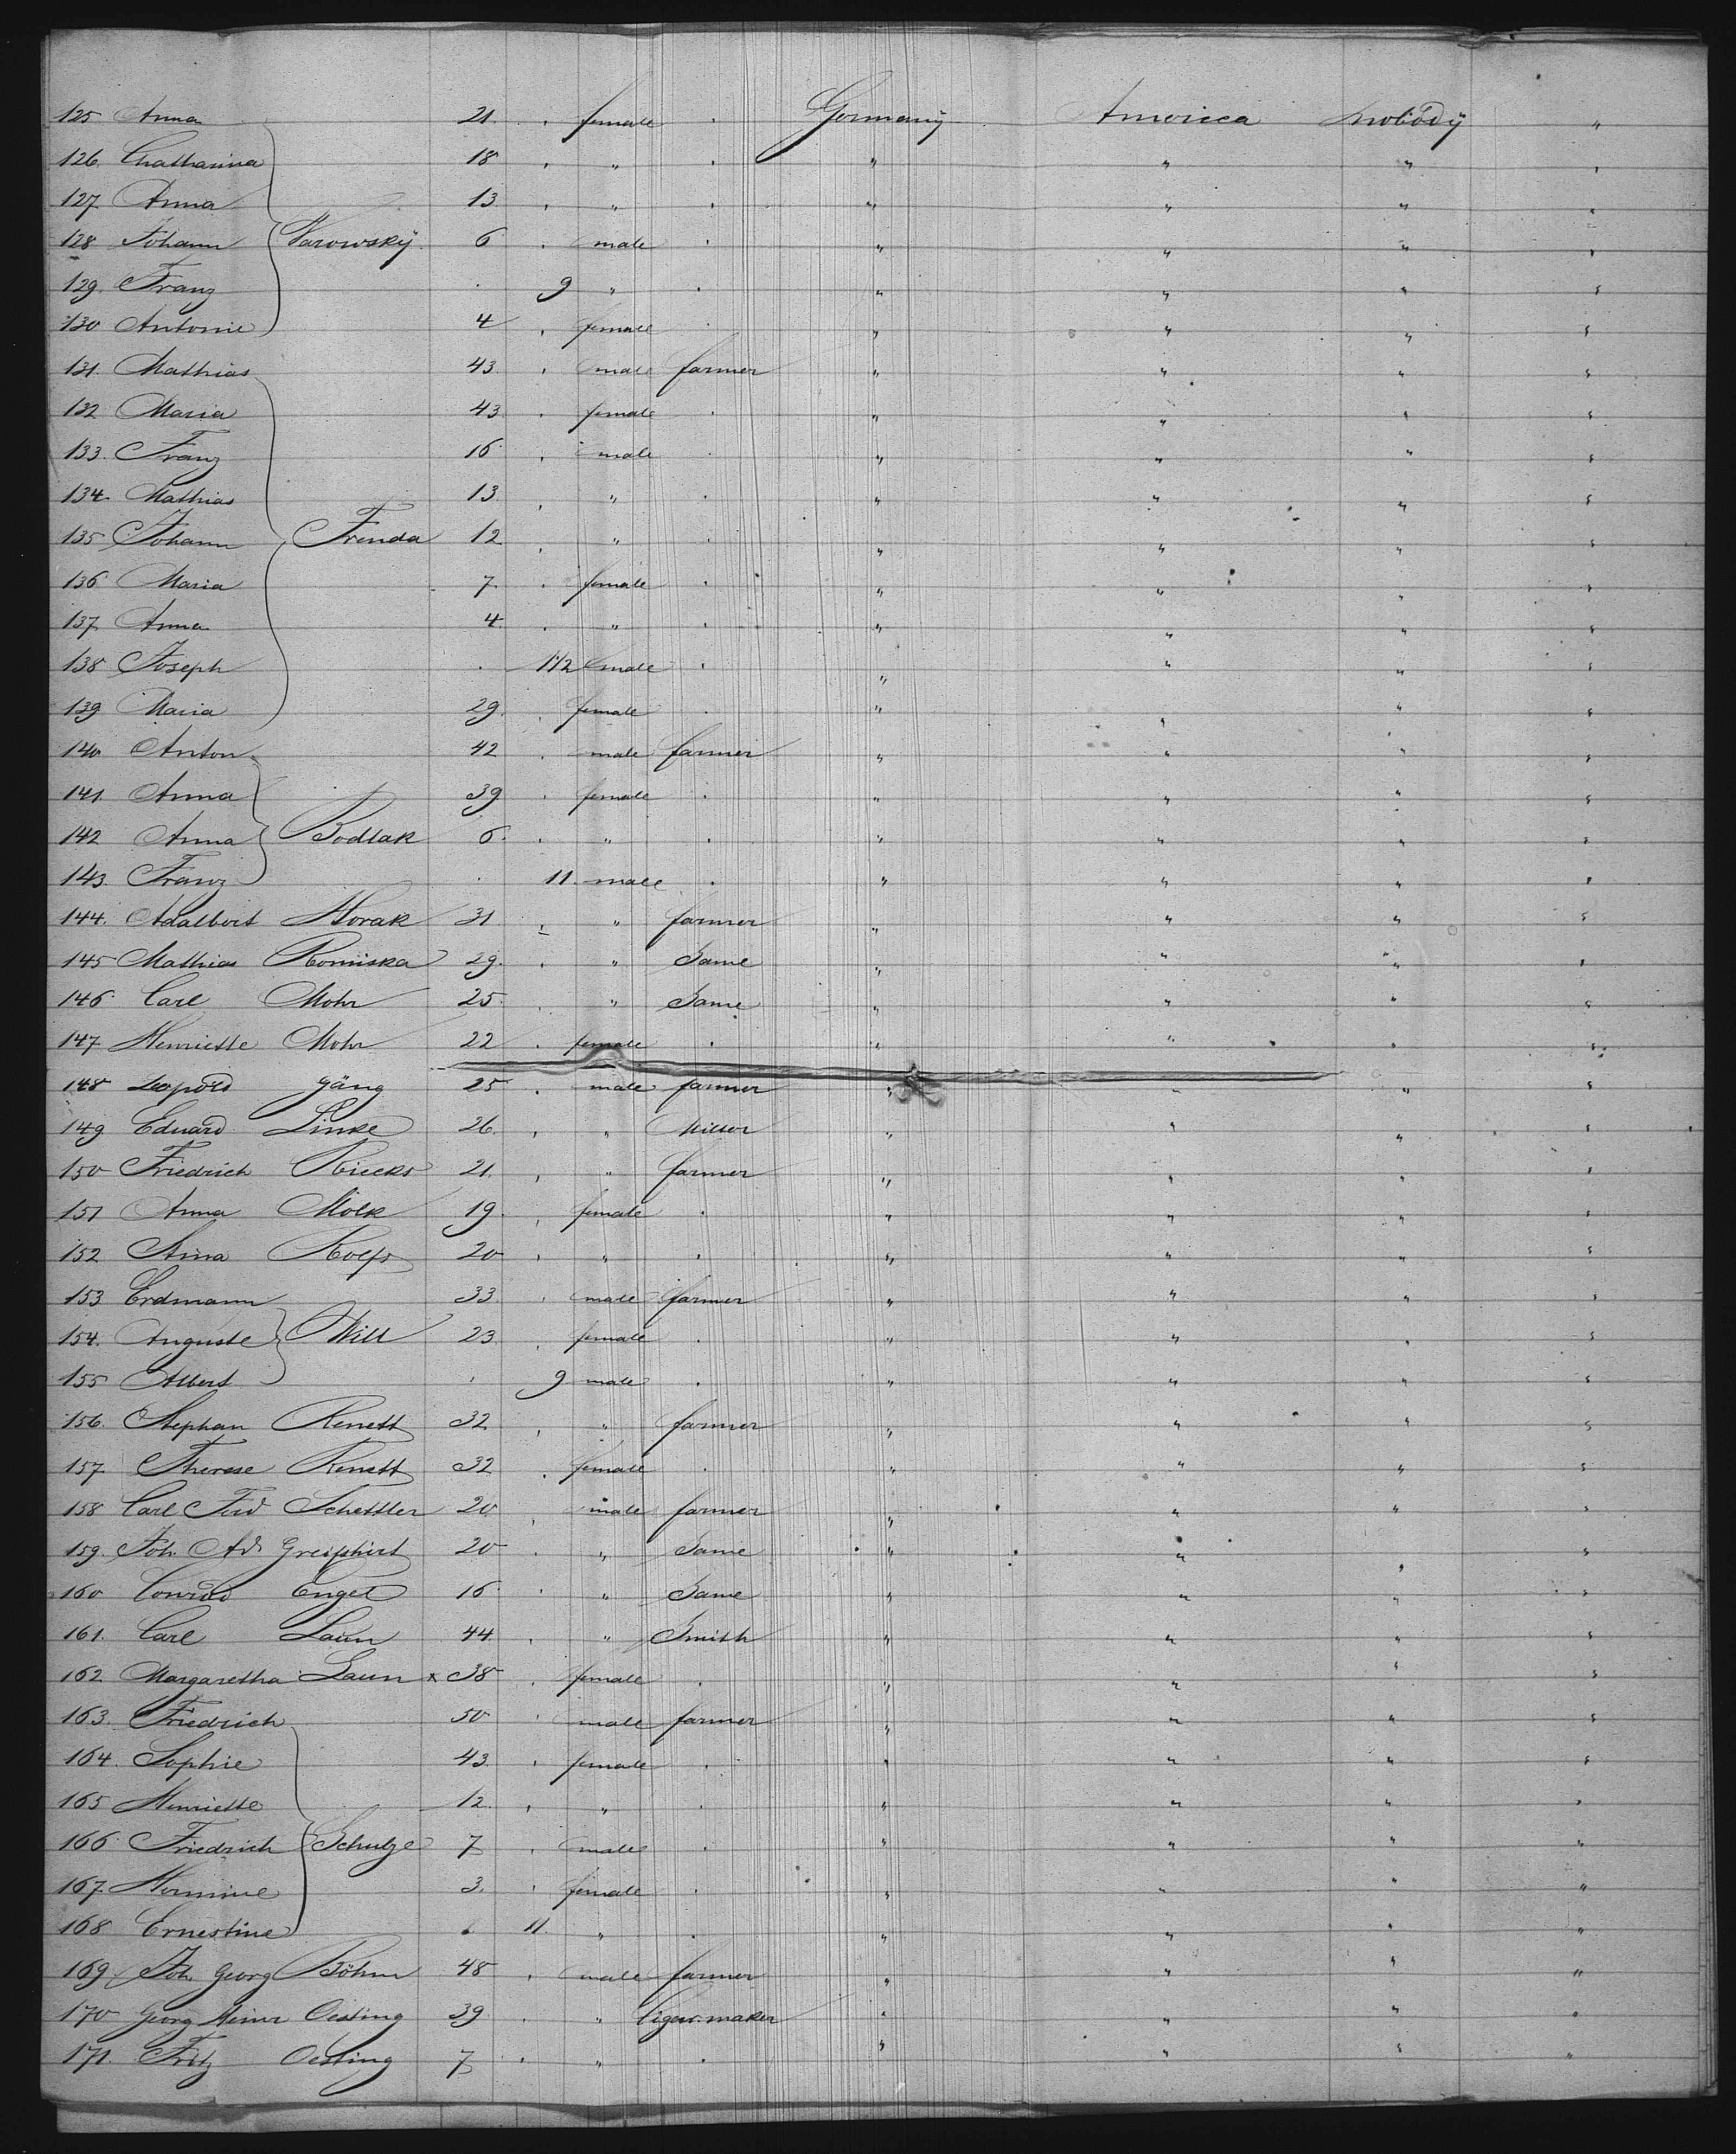 125 Anna 21. " female " Germany America nobody "
126. Chatharina 18 " " " " " " "
127. Anna 13 " " " " " " "
128 Johann Warowsky 6 " male " " " " "
129. Franz 9 " " " " " "
130 Antonie 4 " female " " " " "
131. Mathias 43. " male farmer " " " "
132 Maria 43. " female " " " " "
133. Franz 16 " male " " " " "
134. Mathias 13 " " " " " " "
135 Johann Frenda 12 " " " " " " "
136 Maria 7. " female " " " " "
137. Anna 4. " " " " " " "
138 Joseph 1 1/2 male " " " " "
139 Maria 29. " female " " " " "
140 Anton 42 " male farmer " " " "
141. Anna 39 " female " " " " "
142 Anna Bodlak 6. " " " " " " "
143. Franz 11. male " " " " "
144. Adalbert Horak 31 " " farmer " " " "
145 Mathias 29. " " Same " " " "
146 Carl Mohr 25. " " Same " " " "
147 Henriette Mohr 22 " female " " " " "
148 Leopold Gäng 25 " male farmer " " " "
149 Eduard Linke 26. " " Miller " " " "
150 Friedrich Riecks 21. " " farmer " " " "
151 Anna Mölk 19. " female " " " " "
152 Stina Rolfs 20 " " " " " " "
153 Erdmann 33. " male farmer " " " "
154. Auguste Will 23. " female " " " " "
155 Albert 9 male " " " " "
156. Stephan Renett 32. " " farmer " " " "
157 Therese Renett 32 " female " " " " "
158 Carl Ferd Schettler 20 " male farmer " " " "
159. Joh. Ad. 20 " " Same " " " "
160 Conrad Engel 16 " " Same " " " "
161. Carl Laun 44. " " Smith " " " "
162 Margaretha Laun x 38 " female " " " " "
163. Friedrich 50 " male farmer " " " "
164. Sophie 43. " female " " " " "
165 Henriette 12. " " " " " " "
166 Friedrich Schulze 7 " male " " " " "
167. Hermine 3. " female " " " " "
168 Ernestine 11. " " " " " "
169 Joh. Georg Böhm 48 " male farmer " " " "
170 Georg Heinr Oesting 39. " " Cigar-maker " " " "
171. Fritz Oesting 7 " " " " " " "